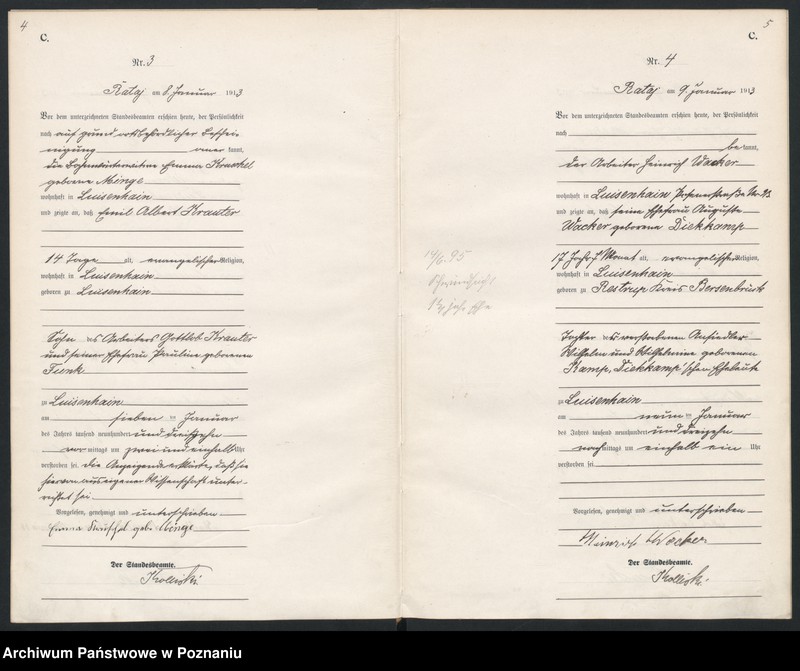 4
C.
Nr. 3
Rataj am 8. Januar 1913
Vor dem unterzeichneten Standesbeamten erschien heute, der Persönlichkeit
nach auf Grund ortsbehördlicher Beschei-
nigung anerkannt,
die Emma
geborene Minge
wohnhaft in Luisenhain
und zeigte an, daß Emil Albert Krauter
14 Tage alt, evangelischer Religion,
wohnhaft in Luisenhain
geboren zu Luisenhain
Sohn des Arbeiters Gottlieb Krauter
und seiner Ehefrau Pauline geborenen
Funk
zu Luisenhain
am sieben ten Januar
des Jahres tausend neunhundert und dreizehn
vormittags um zwei und einhalb Uhr
verstorben sei. Die Anzeigende erklärte, daß sie
hiervon aus eigener Wissenschaft unter-
richtet sei
Vorgelesen, genehmigt und unterschrieben
Emma geb. Minge
Der Standesbeamte.
5
C.
Nr. 4
Rataj am 9. Januar 1913
Vor dem unterzeichneten Standesbeamten erschien heute, der Persönlichkeit
nach
bekannt,
der Arbeiter Heinrich Wacker
wohnhaft in Luisenhain Posenerstraße No.
und zeigte an, daß seine Ehefrau Auguste
Wacker geborene Diekkamp
17 Jahr 7 Monat alt, evangelischer Religion,
wohnhaft in Luisenhain
geboren zu Restrup Kreis Bersenbrück
Tochter des verstorbenen Ansiedler
Wilhelm und Wilhelmine geborenen
Kamp, Diekkamp'schen Eheleute
zu Luisenhain
am neun ten Januar
des Jahres tausend neunhundert und dreizehn
nachmittags um einhalb ein Uhr
verstorben sei
Vorgelesen, genehmigt und unterschrieben
Heinrich Wacker
Der Standesbeamte.
14/6. 95
Schwindsucht
Archiwum Państwowe w Poznaniu